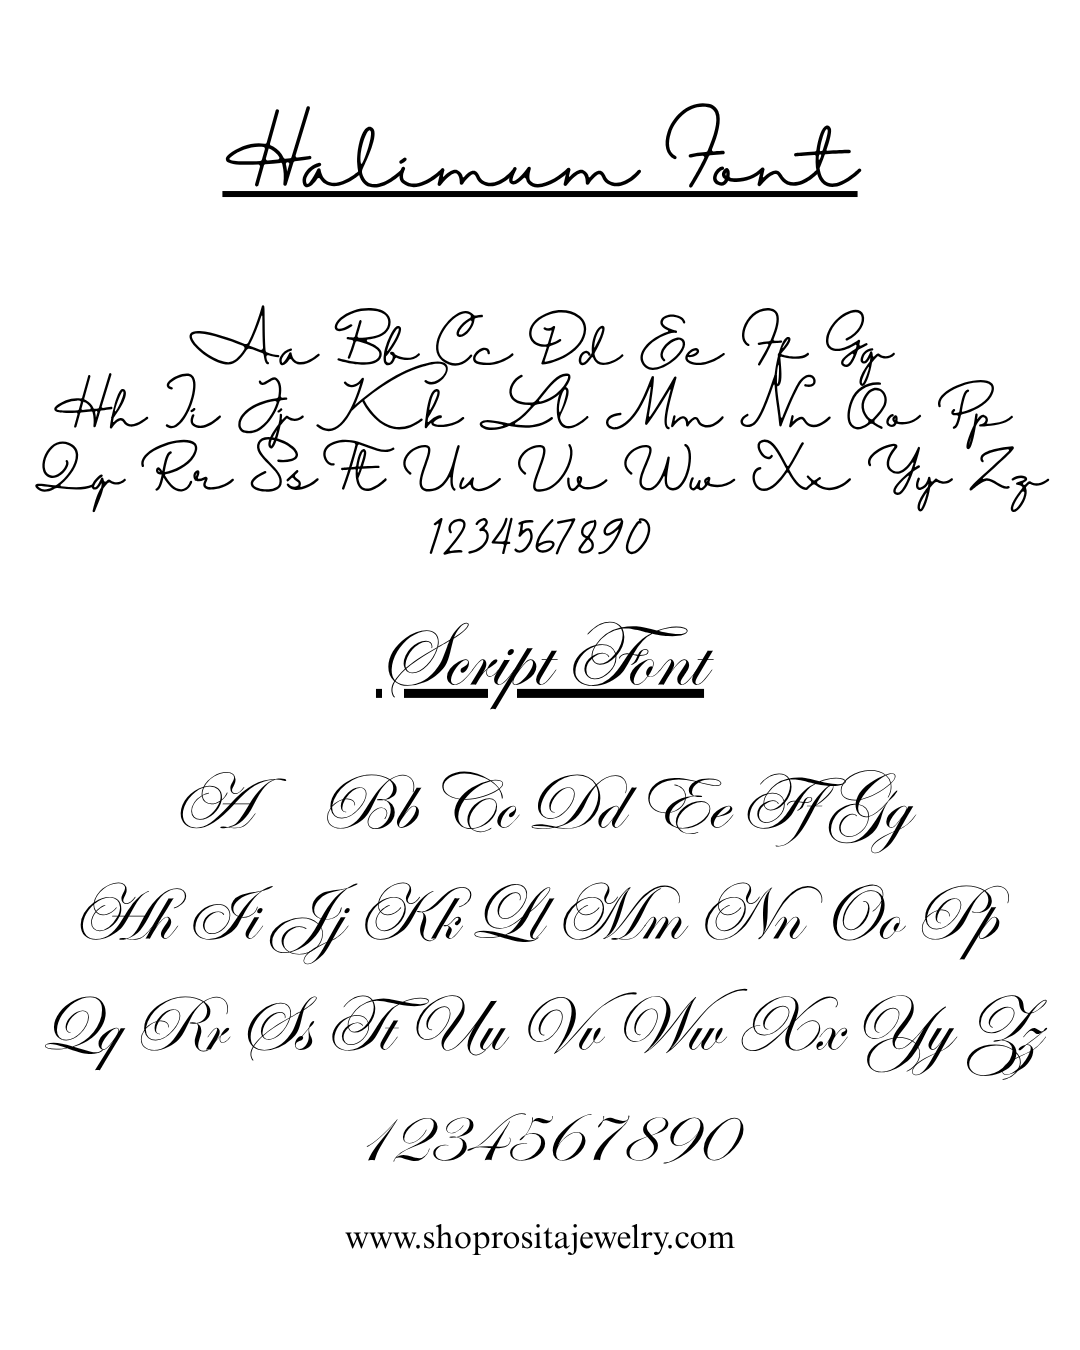 Halimum Font
Aa Bb Cc Dd Ee Ff Gg
Hh Ii Jj Kk Ll Mm Nn Oo Pp
Qq Rr Ss Tt Uu Vv Ww Xx Yy Zz
1234567890
Script Font
A Bb Cc Dd Ee Ff Gg
Hh Ii Jj Kk Ll Mm Nn Oo Pp
Qq Rr Ss Tt Uu Vv Ww Xx Yy Zz
1234567890
www.shoprositajewelry.com